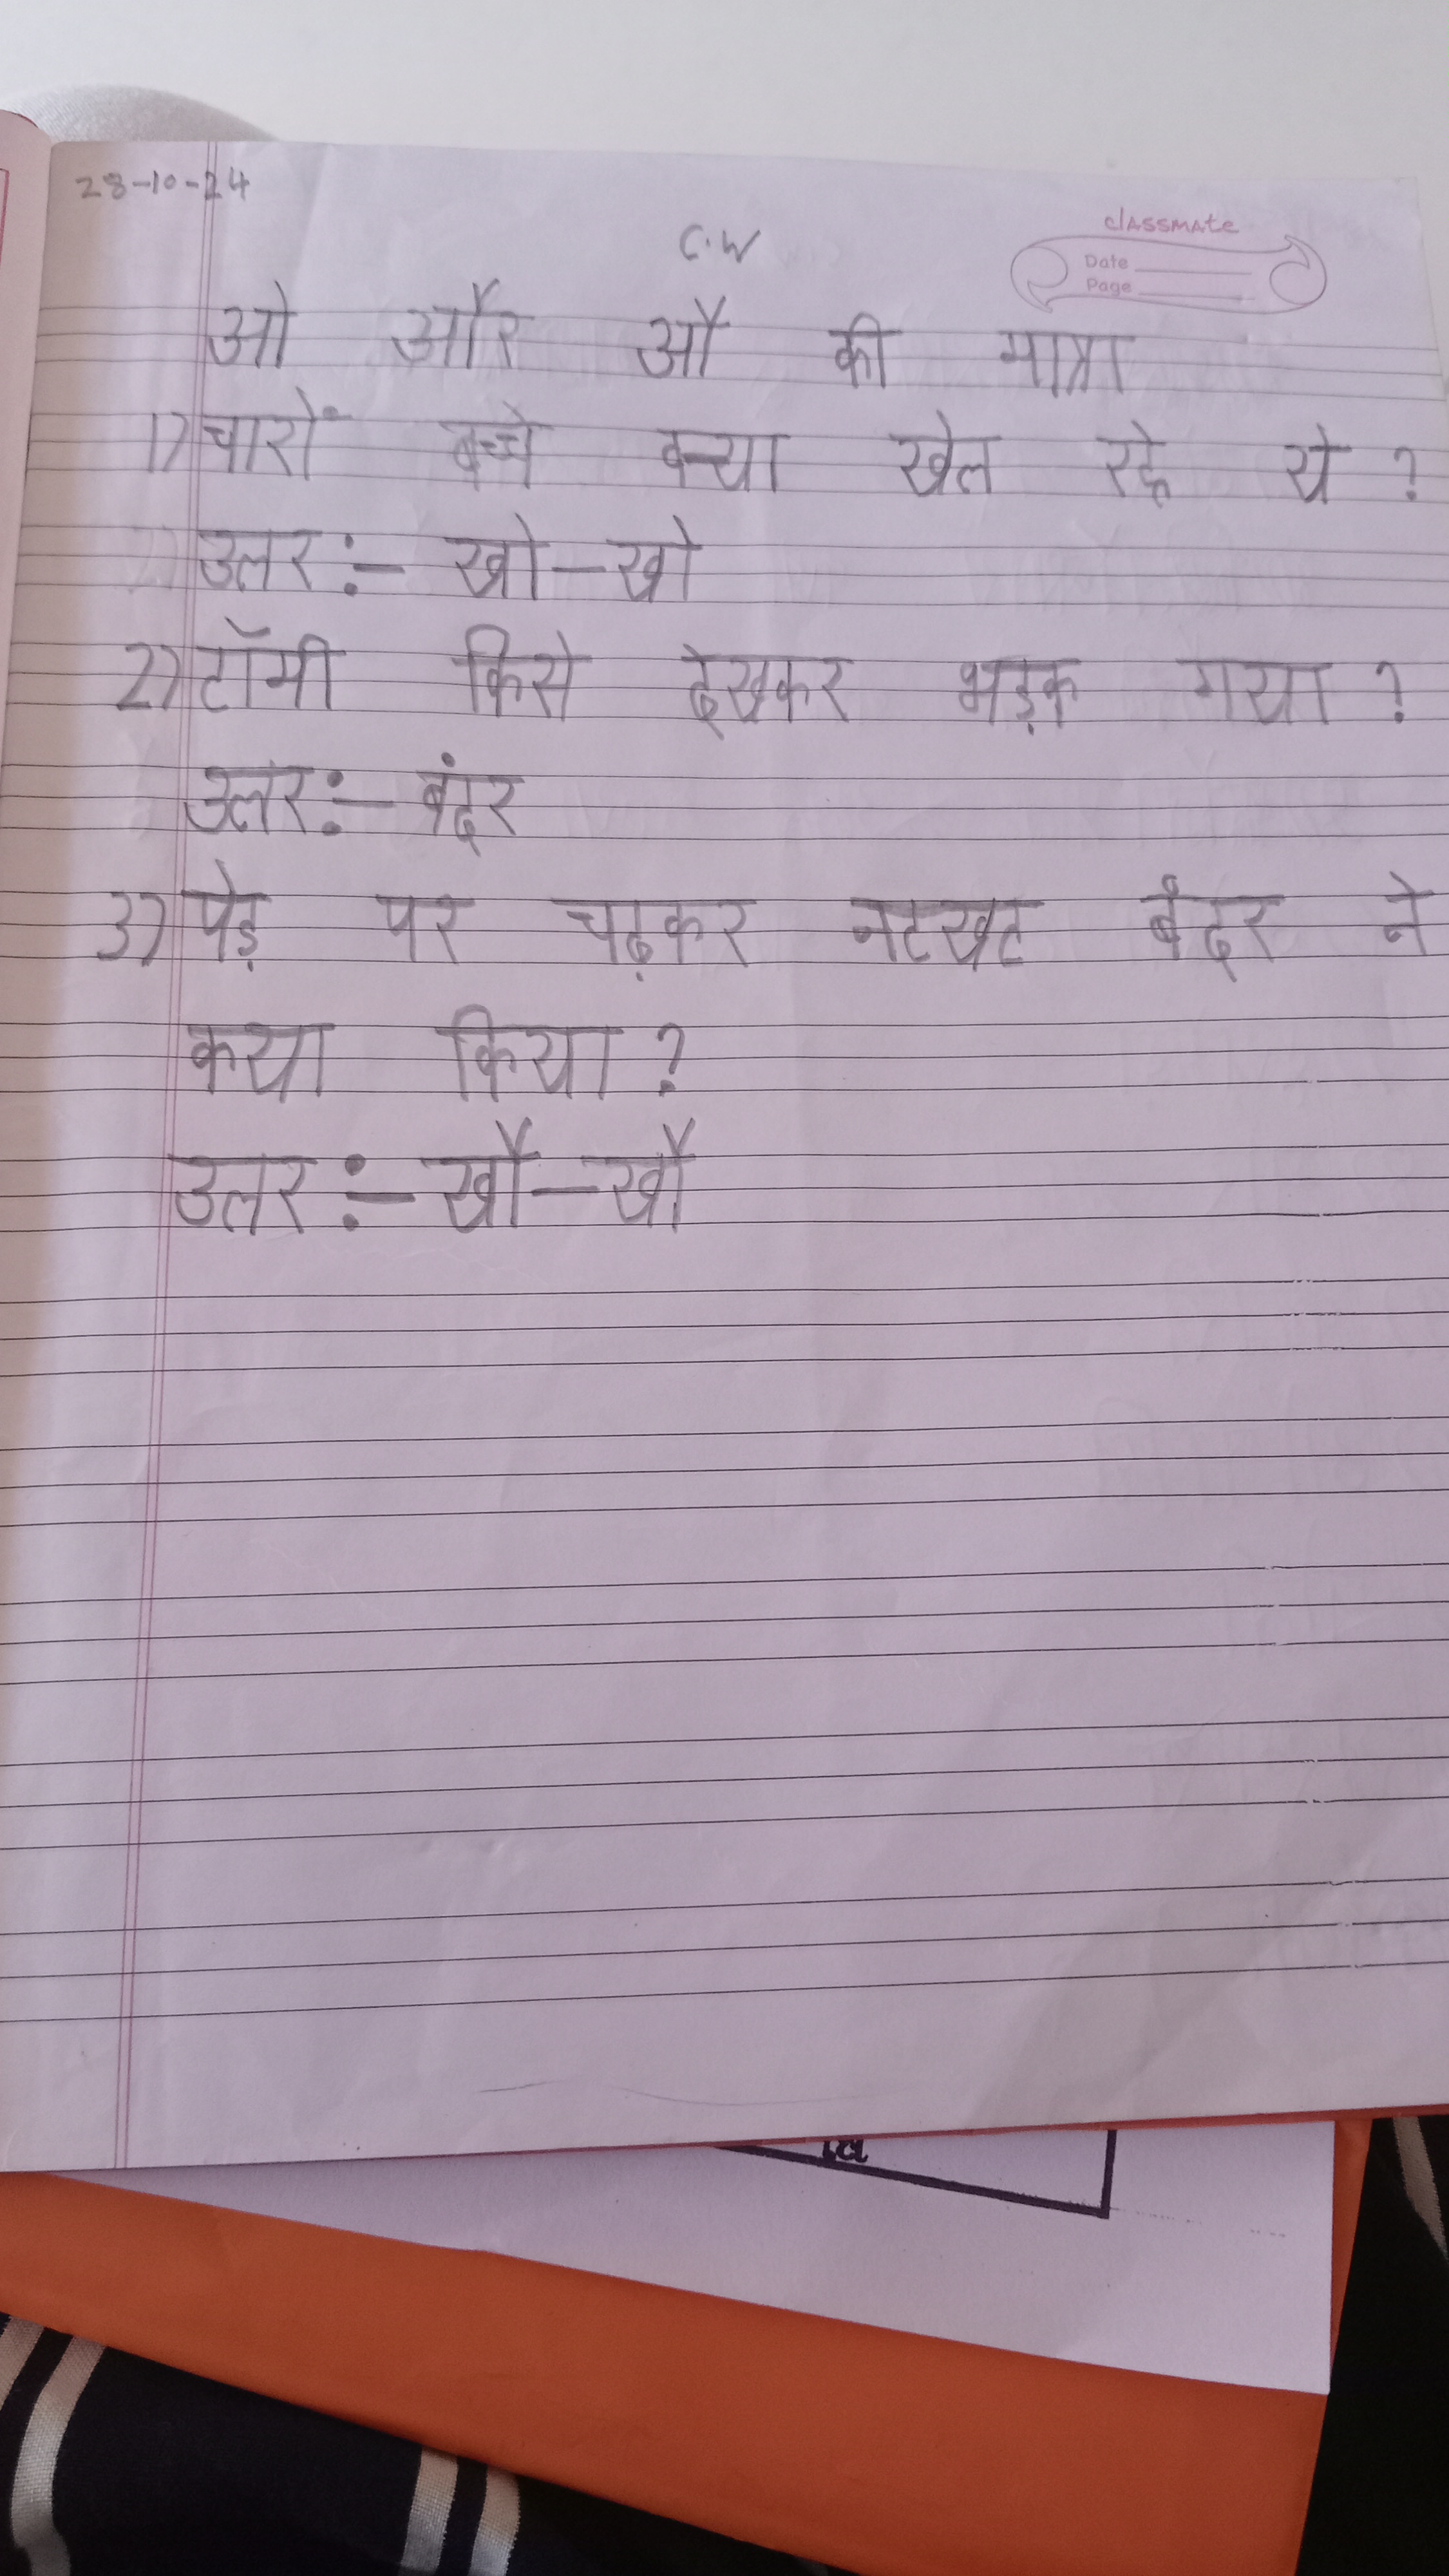 28-10-24
C.W
classmate
Date
Page
ओ और औ की मात्रा
1) चारों बच्चे क्या खेल रहे थे ?
उत्तर :- खो-खो
2) टॉमी किसे देखकर भड़क गया ?
उत्तर :- बंदर
3) पेड़ पर चढ़कर नटखट बंदर ने
कया किया ?
उत्तर :- खौ-खौ